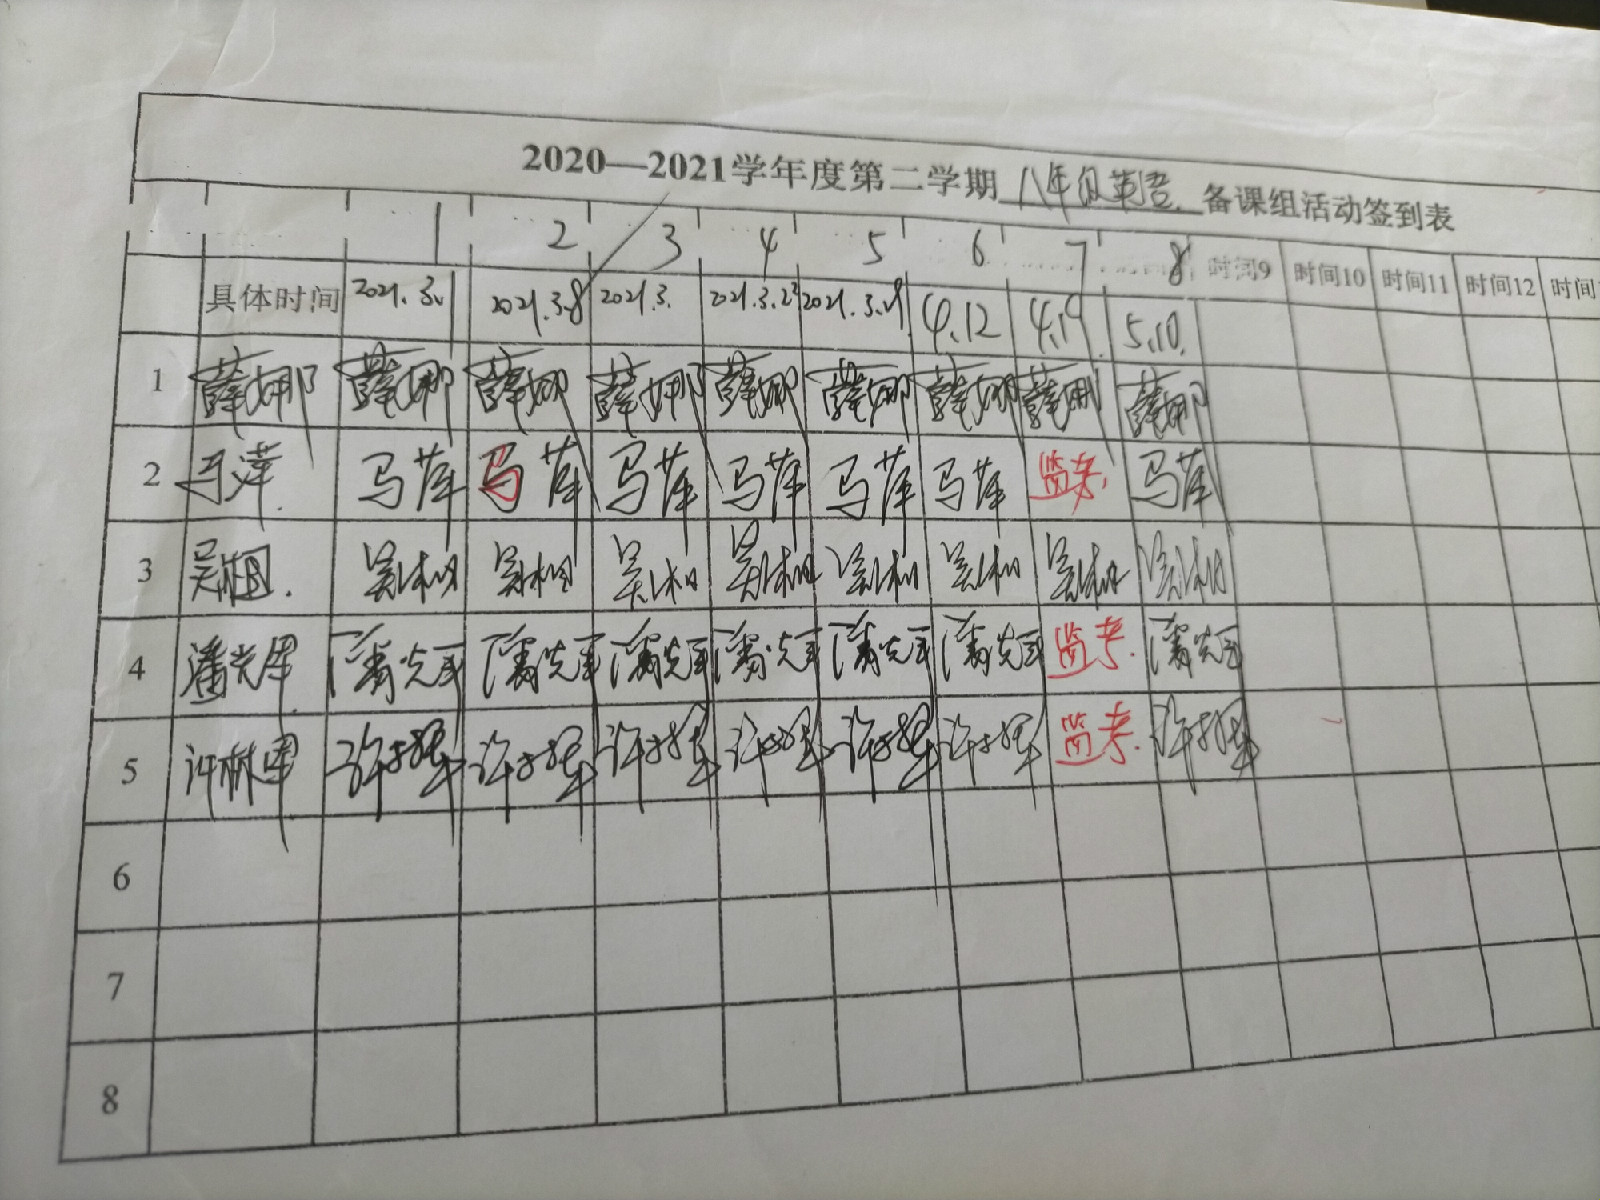 2020—2021学年度第二学期 八年级英语 备课组活动签到表
1 2 3 4 5 6 7 8 时间9 时间10 时间11 时间12 时间
具体时间 2021.3.1 2021.3.8 2021.3. 2021.3.23 2021.3.29 4.12 4.19 5.10.
1 薛娜 薛娜 薛娜 薛娜 薛娜 薛娜 薛娜 薛娜 薛娜
2 马萍 马萍 马萍 马萍 马萍 马萍 马萍 监考 马萍
3 吴相 吴相 吴相 吴相 吴相 吴相 吴相 吴相 吴相
4 潘光军 潘光军 潘光军 潘光军 潘光军 潘光军 潘光军 监考 潘光军
5 许林军 许林军 许林军 许林军 许林军 许林军 许林军 监考 许林军
6
7
8